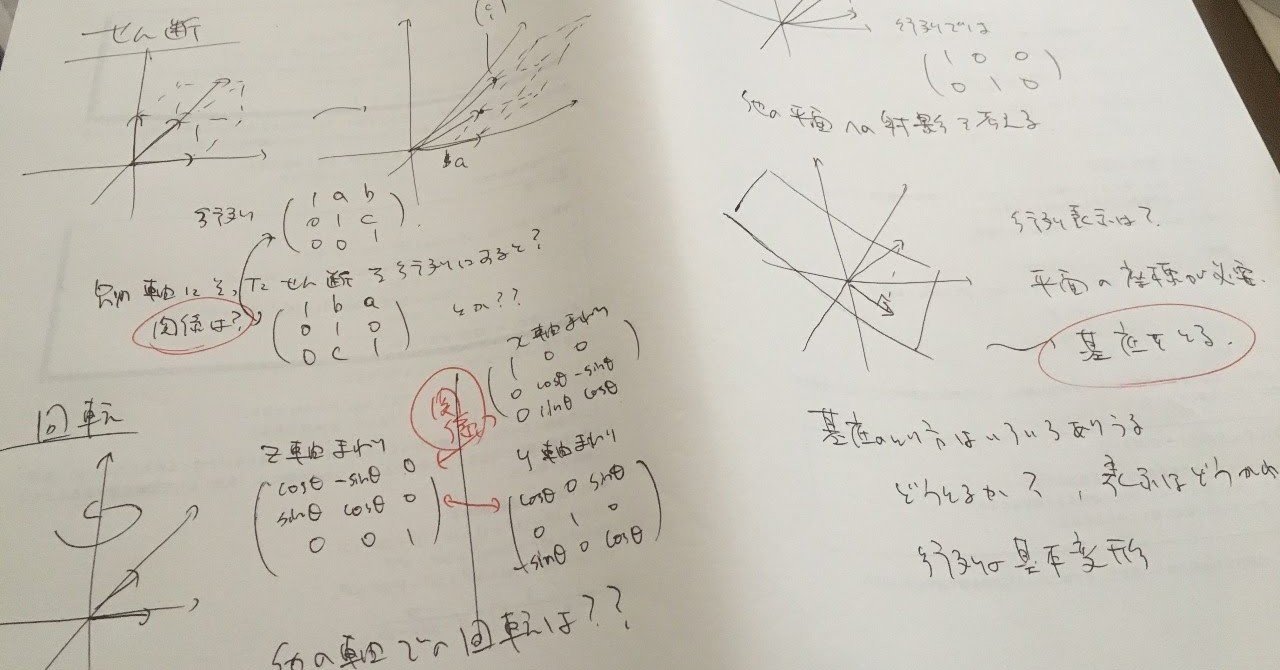 せん断
a
行列
( 1 a b
0 1 c
0 0 1 )
別の軸にそったせん断を行列にすると?
関係は?
( 1 b a
0 1 0
0 c 1 )
とか??
回転
z軸まわり
( cosθ -sinθ 0
sinθ cosθ 0
0 0 1 )
関係は
x軸まわり
( 1 0 0
0 cosθ -sinθ
0 sinθ cosθ )
y軸まわり
( cosθ 0 sinθ
0 1 0
-sinθ 0 cosθ )
他の軸での回転は??
行列では
( 1 0 0
0 1 0 )
他の平面への射影を考える
行列表示は?
平面の座標が必要.
基底をとる.
基底のとり方はいろいろありうる
どうとるか?, 表示はどうかわ
行列の基本変形